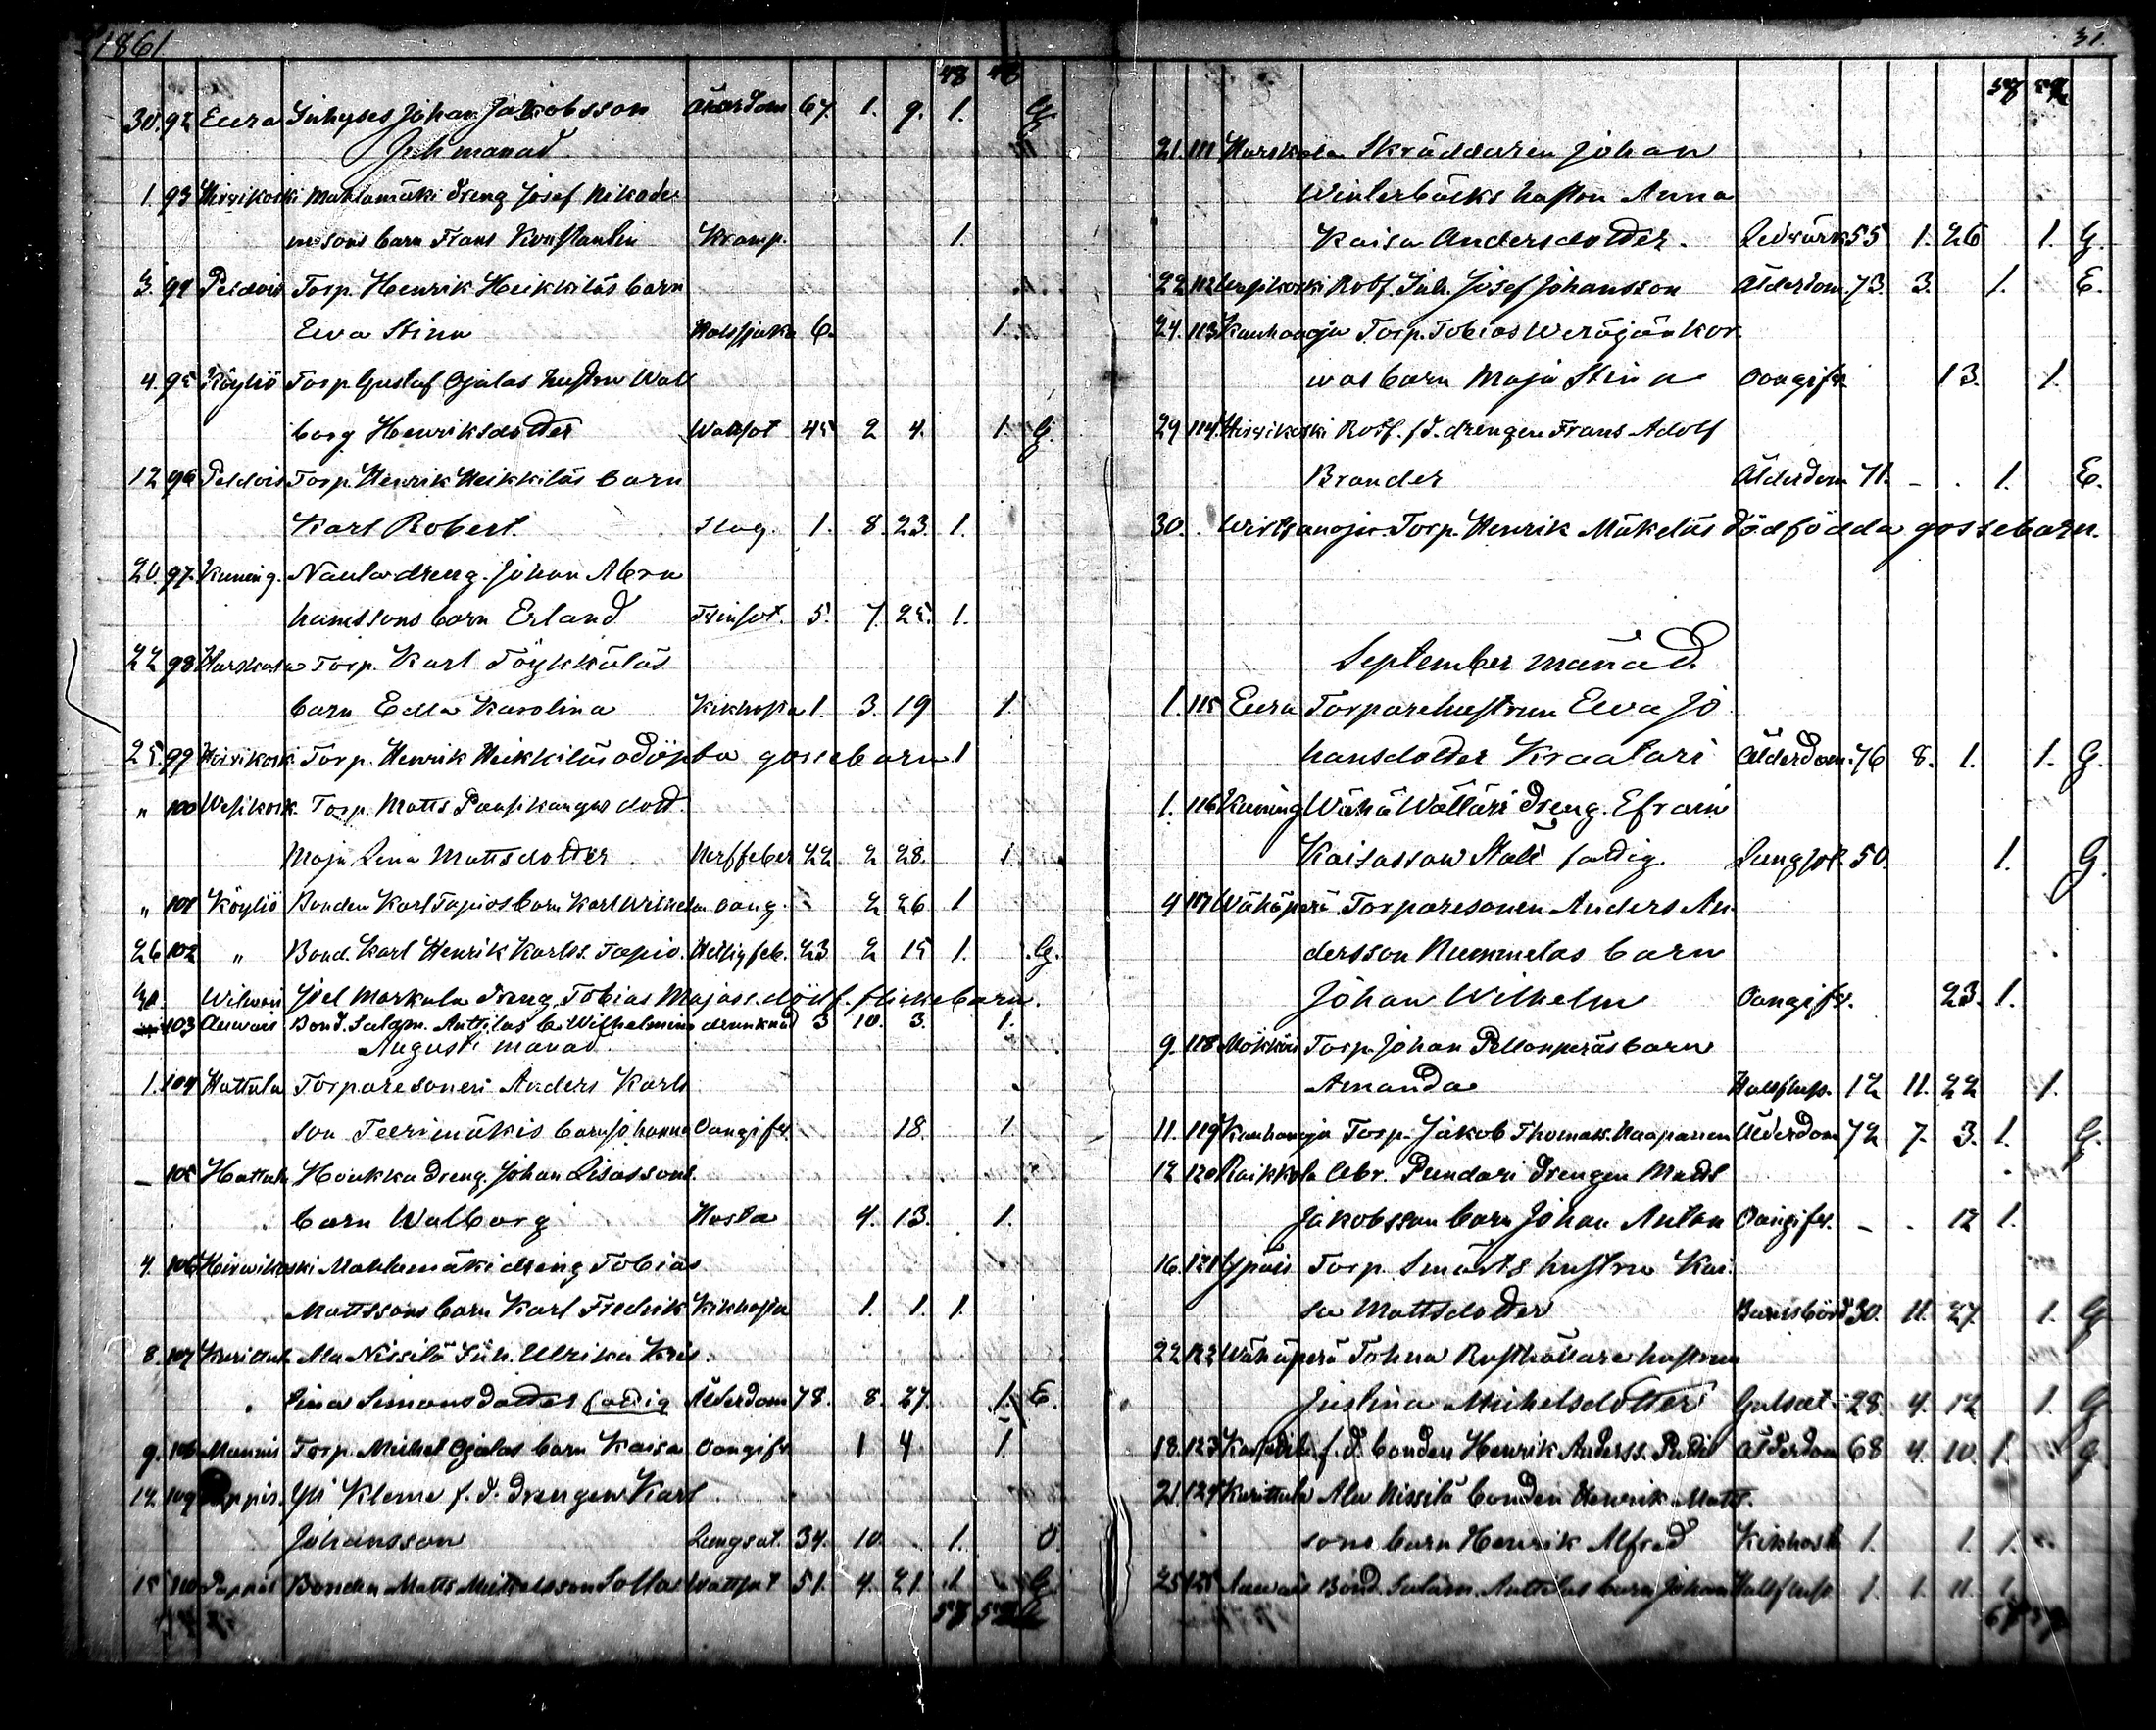 1861
48
30. 92 Eura Inhyses Johan Jakobsson Ålderdom 67. 1. 9. 1. G
Juli manad
1. 93 Hirvikoski Mahlamäki dreng Josef Nikode
mssons barn Frans Konstantin Kramp. 1.
3. 94 Peldois Torp. Henrik Heikkiläs barn
Ewa Stina 6. 1.
4. 95 Köyliö Torp Gustaf Ojalas hustru Wal
borg Henriksdotter Watsot 45 2 4. 1. G.
12 96 Peldois Torp. Henrik Heikkiläs barn
Karl Robert. Slag. 1. 8. 23. 1.
20. 97. Kuning. Naula dreng. Johan Abra
hamssons barn Erland Tvinsot. 5. 7. 25. 1.
22 98 Torp. Karl Töykkäläs
barn Edla Karolina Kikhosta 1. 3. 19 1.
25. 99 Hirvikosk. Torp. Henrik Heikkiläs odöpta gossebarn 1
" 100 Torp. Matts dott.
Maja Lena Mattsdotter Nerffeber 22 2 28. 1.
" 101 Köyliö Bonden Karl Tapios barn Karl Wilhelm oang. - 2 26 1
26 102 " Bond. Karl Henrik Karls. Tapio. 23 2 15 1. G.
Joel Markula dreng Tobias Majass. dödf. flickebarn.
103 Bond. Salom. Anttilas b. Wilhelmina drunknad 3 10. 3. 1.
Augusti manad.
1. 104 Hattula Torparesonen Anders Karls
son Teerimäkis barn Johanna Oangifv. 18. 1
- 105 Hattula Houkka dreng. Johan Lisassons
barn Walborg Hosta 4. 13. 1.
4. 106 Hirwikoski Mahlamäki dreng Tobias
Mattssons barn Karl Fredrik Kikhosta 1. 1. 1
8. 107 Kurittula Ala Nissilä Inh. Ulrika Kris
tina Simonsdotter fattig Ålderdom 78. 8. 27. 1. E.
9. 108 Mannis Torp. Michel Ojalas barn Kaisa Oangifv 1 4 1.
14. 109 Yli Kleme f. d. drengen Karl
Johansson Lungsot. 34. 10. 1. O.
15 110 Bonden Matts Michelsson Solla Wattsot 51. 4. 21. 1 G
57
31.
21. 111 Skräddaren Johan
Winterbäcks hustru Anna
Kaisa Andersdotter. 55 1. 26 1. G.
22 112 Rotf. Inh. Josef Johansson Ålderdom. 73. 3. 1. E.
24. 113 Kauhanoja Torp. Tobias Weräjänkor
was barn Maja Stina Oangifv. 13. 1.
29 114. Hirvikoski Rotf. f.d. drengen Frans Adolf
Brander Ålderdom 71. - . 1. E.
30. Torp. Henrik Mäkeläs dödfödda gossebarn.
September månad.
1. 115 Eura Torparehustrun Ewa Jo
hansdotter Kraatari Ålderdom. 76 8. 1. 1. G.
1. 116 Kuning Wähä Wälläri dreng. Efraim
Kaisasson fattig. Lungsot. 50. 1. G.
4 117 Wähäperä Torparesonen Anders An
dersson Nummelas barn
Johan Wilhelm Oangifv. 23. 1.
9. 118 Torp. Johan Pellonperäs barn
Amanda 12 11. 22 1.
11. 119 Kauhanoja Torp. Jakob Thomass. Haapanen Ålderdom 72 7. 3. 1. G.
12 120 Raikkola Abr. Pundari drengen Matts
Jakobsson barn Johan Anton Oangifv. - - 12 1.
16. 121 Ypäis Torp. Smärts hustru Kai
sa Mattsdotter Barnsbörd 30. 11. 27. 1. G
22 122 Wähäperä Rusthållarehustrun
Justina Michelsdotter 28. 4. 12 1. G
18. 123 f. d. bonden Henrik Anderss. Ålderdom 68 4. 10. 1. G.
21. 124 Kurittula Ala Nissilä bonden Henrik Matts
sons barn Henrik Alfred Kikhosta 1. 1. 1.
25 125 Bond. Salom. Anttilas barn Johan 1. 1. 11. 1.